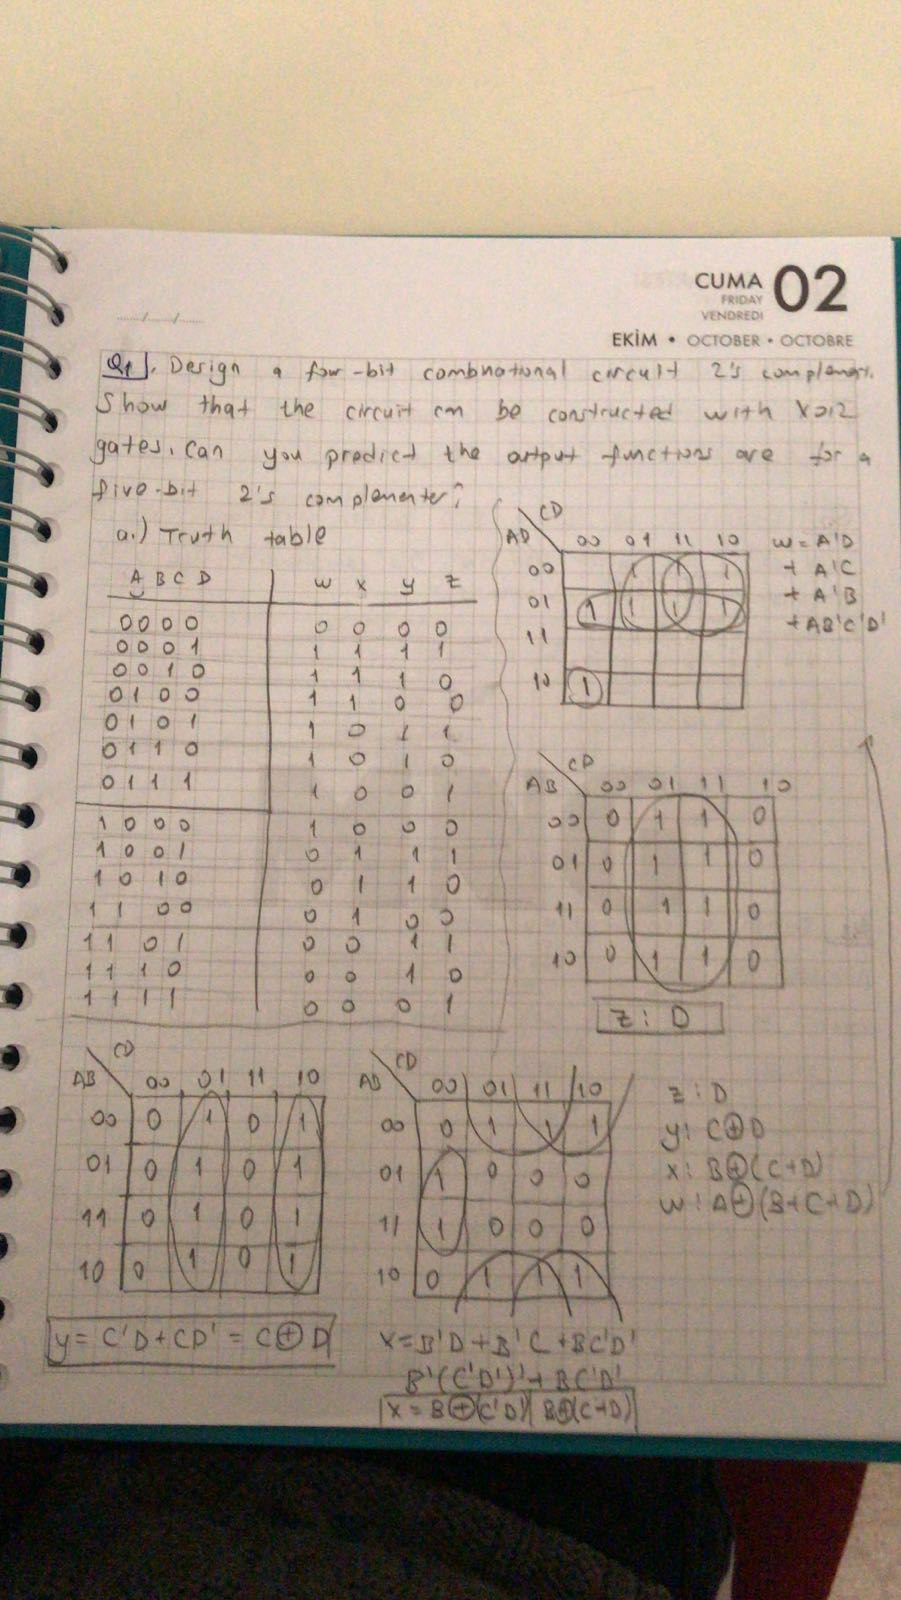 CUMA 02
FRIDAY
VENDREDI
EKİM • OCTOBER • OCTOBRE
..../..../....
Q1). Design a four-bit combnational circuit 2's complement.
Show that the circuit cm be constructed with XOR
gates. Can you predict the output functions are for a
five-bit 2's complementer?
a.) Truth table
A B C D | w x y z
0 0 0 0 | 0 0 0 0
0 0 0 1 | 1 1 1 1
0 0 1 0 | 1 1 1 0
0 1 0 0 | 1 1 0 0
0 1 0 1 | 1 0 1 1
0 1 1 0 | 1 0 1 0
0 1 1 1 | 1 0 0 1
1 0 0 0 | 1 0 0 0
1 0 0 1 | 0 1 1 1
1 0 1 0 | 0 1 1 0
1 1 0 0 | 0 1 0 0
1 1 0 1 | 0 0 1 1
1 1 1 0 | 0 0 1 0
1 1 1 1 | 0 0 0 1
CD
AD 00 01 11 10
00 1 1 1
01 1 1 1 1
11
10 1
w = A'D
+ A'C
+ A'B
+ AB'C'D'
CD
AB 00 01 11 10
00 0 1 1 0
01 0 1 1 0
11 0 1 1 0
10 0 1 1 0
z : D
CD
AB 00 01 11 10
00 0 1 0 1
01 0 1 0 1
11 0 1 0 1
10 0 1 0 1
y = C'D + CD' = C⊕D
CD
AB 00 01 11 10
00 0 1 1 1
01 1 0 0 0
11 1 0 0 0
10 0 1 1 1
x = B'D + B'C + BC'D'
B'(C'D')' + BC'D'
x = B⊕(C'D') B⊕(C+D)
z : D
y : C⊕D
x : B⊕(C+D)
w : A⊕(B+C+D)